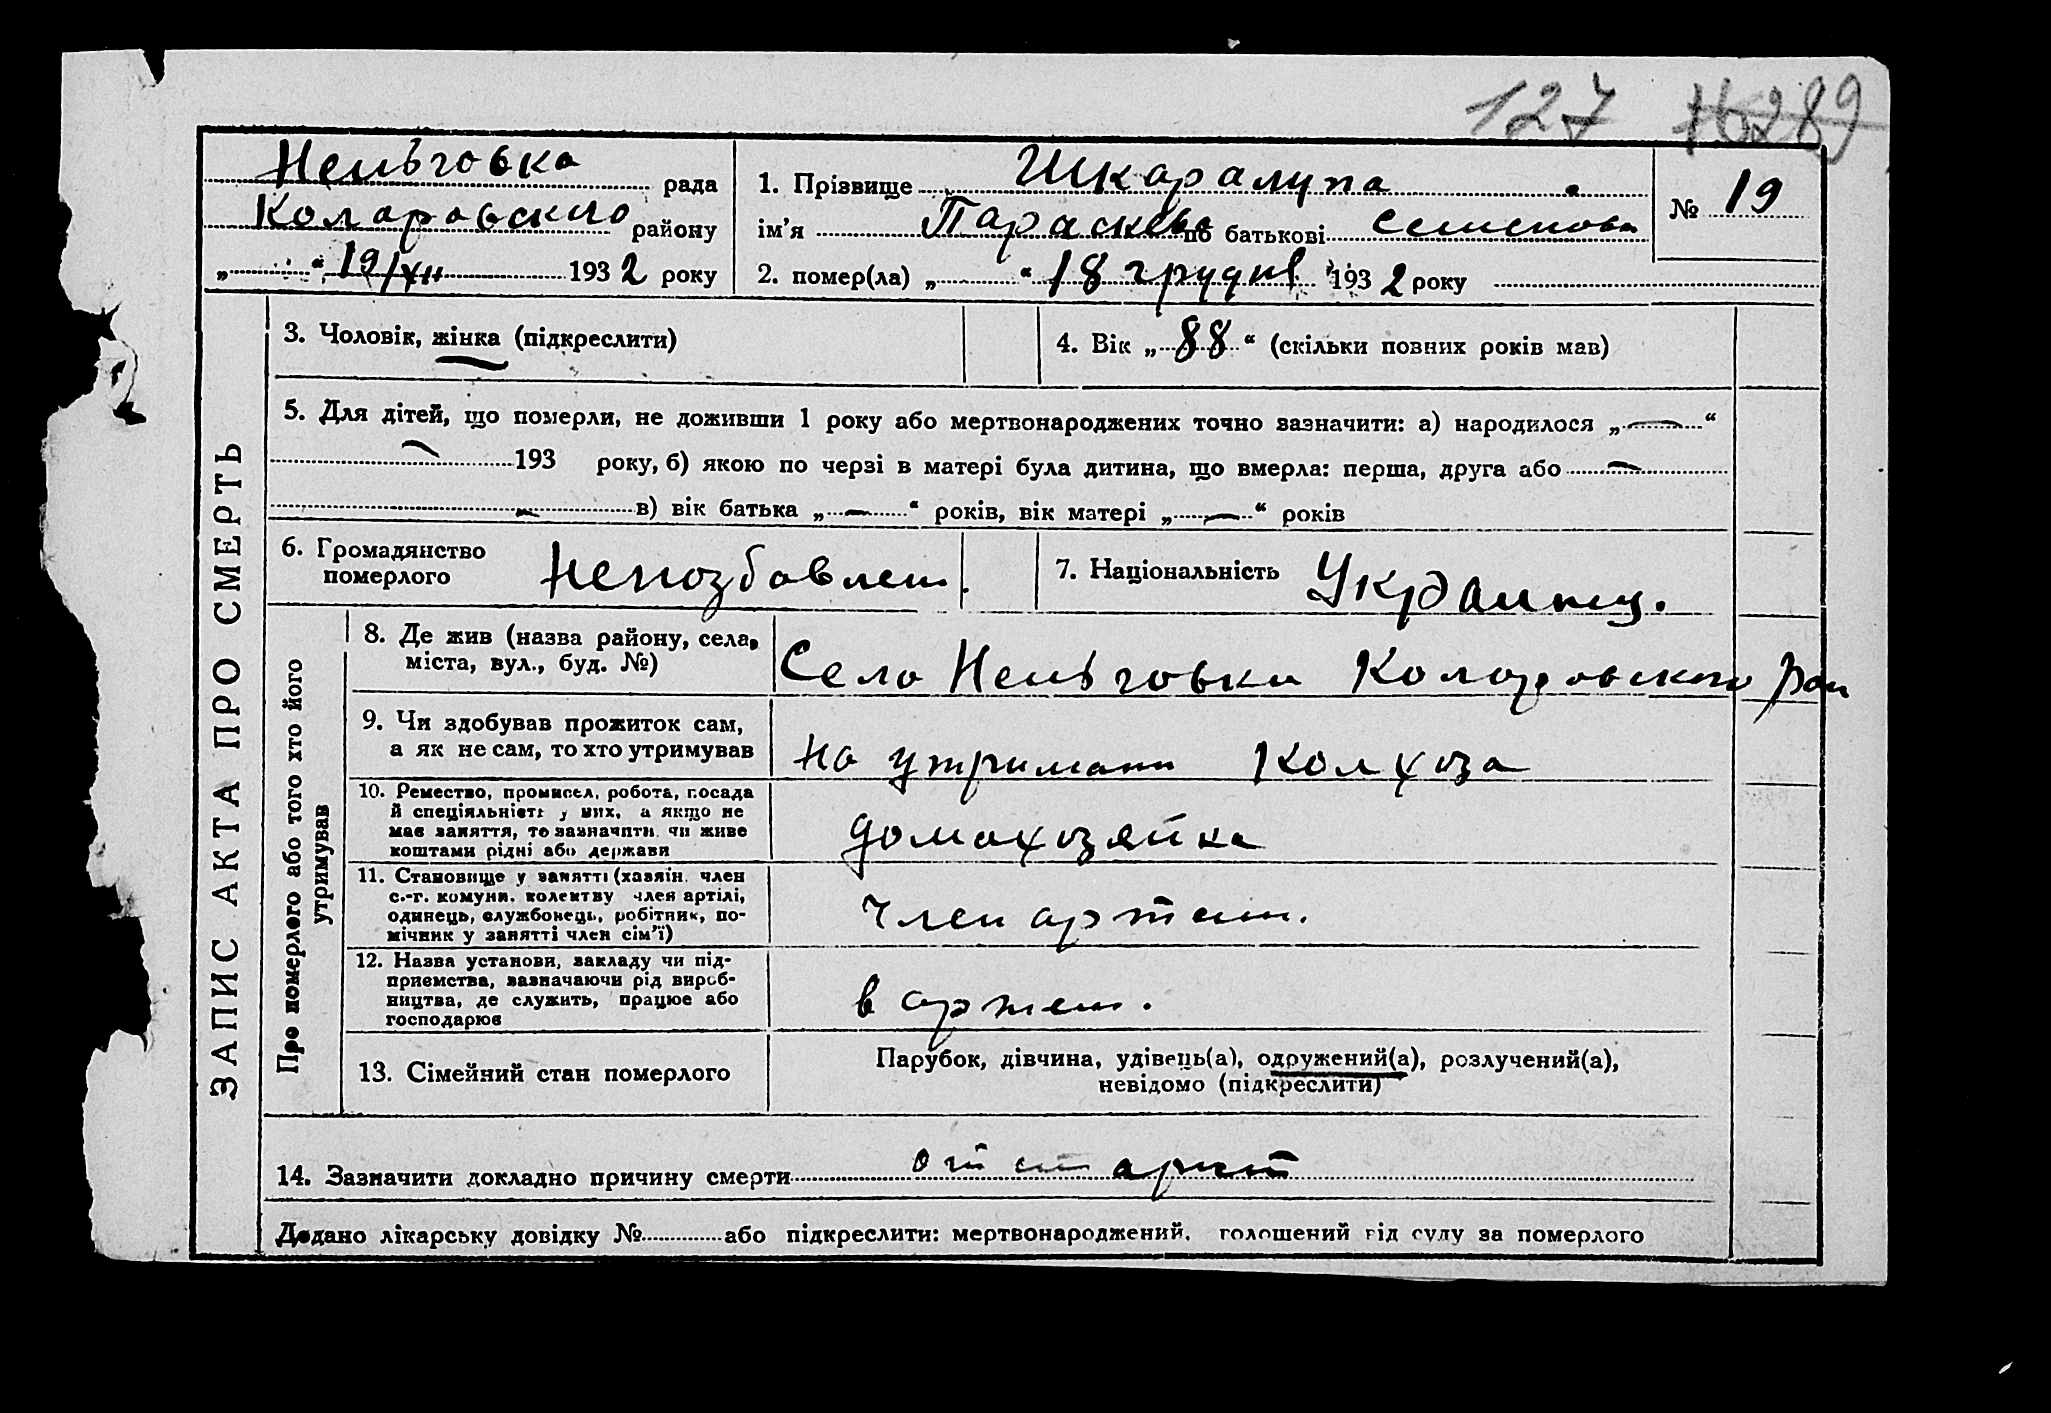 127 16289
Нельговка рада
Коларовского району
„ “ 19/XII 1932 року
1. Прізвище Шкаралупа
ім’я Параскева по батькові Семенова
№ 19
2. помер(ла) „ “ 18 грудня 1932 року
3. Чоловік, жінка (підкреслити)
4. Вік „ 88 “ (скільки повних років мав)
5. Для дітей, що померли, не доживши 1 року або мертвонароджених точно зазначити: а) народилося „ — “
— 193 року, б) якою по черзі в матері була дитина, що вмерла: перша, друга або —
— в) вік батька „ — “ років, вік матері „ — “ років
6. Громадянство
померлого
Непозбавлен.
7. Національність
Украинц.
ЗАПИС АКТА ПРО СМЕРТЬ
Про померлого або того хто його
утримував
8. Де жив (назва району, села,
міста, вул., буд. №)
Село Нельговка Коларовского рай
9. Чи здобував прожиток сам,
а як не сам, то хто утримував
на утримани Колхоза
10. Ремество, промисел, робота, посада
й спеціяльність у них, а якщо не
має заняття, то зазначити, чи живе
коштами рідні або держави
домохозяйка
11. Становище у занятті (хазяїн, член
с.-г. комуни, колективу член артілі,
одинець, службовець, робітник, по-
мічник у занятті член сім’ї)
Член артели.
12. Назва установи, закладу чи під-
приємства, зазначаючи рід вироб-
ництва, де служить, працює або
господарює
в артели.
13. Сімейний стан померлого
Парубок, дівчина, удівець(а), одружений(а), розлучений(а),
невідомо (підкреслити)
14. Зазначити докладно причину смерти от старост
Додано лікарську довідку № або підкреслити: мертвонароджений, голошений від суду за померлого